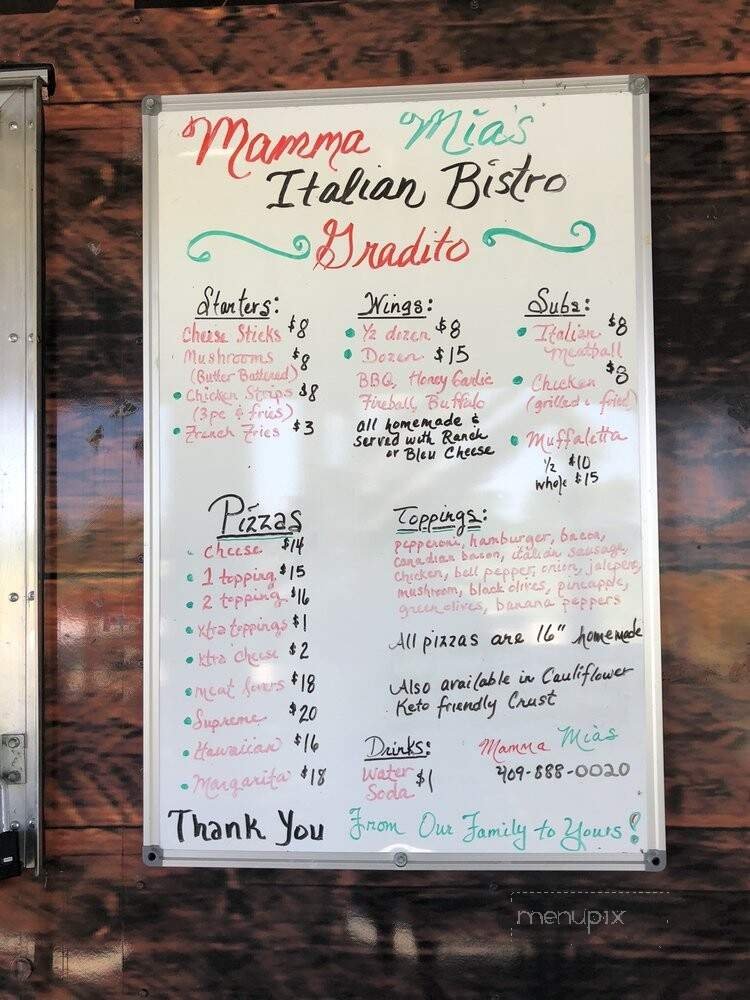 Mamma Mia's
Italian Bistro
Gradito
Starters:
Cheese Sticks $8
Mushrooms $8
(Butter Battered)
Chicken Strips $8
(3pc & fries)
French Fries $3
Wings:
1/2 dozen $8
Dozen $15
BBQ, Honey Garlic
Fireball, Buffalo
all homemade &
served with Ranch
or Bleu Cheese
Subs:
Italian $8
Meatball
Chicken $8
(grilled & fried)
Muffaletta
1/2 $10
whole $15
Pizzas
Cheese $14
1 topping $15
2 topping $16
xtra toppings $1
xtra cheese $2
meat lovers $18
Supreme $20
Hawaiian $16
Margarita $18
Toppings:
pepperoni, hamburger, bacon,
canadian bacon, italian sausage,
chicken, bell pepper, onion, jalepeno,
mushroom, black olives, pineapple,
green olives, banana peppers
All pizzas are 16" homemade
Also available in Cauliflower
Keto friendly Crust
Drinks:
Water
Soda $1
Mamma Mias
409-888-0020
Thank You From Our Family to Yours!
menupix